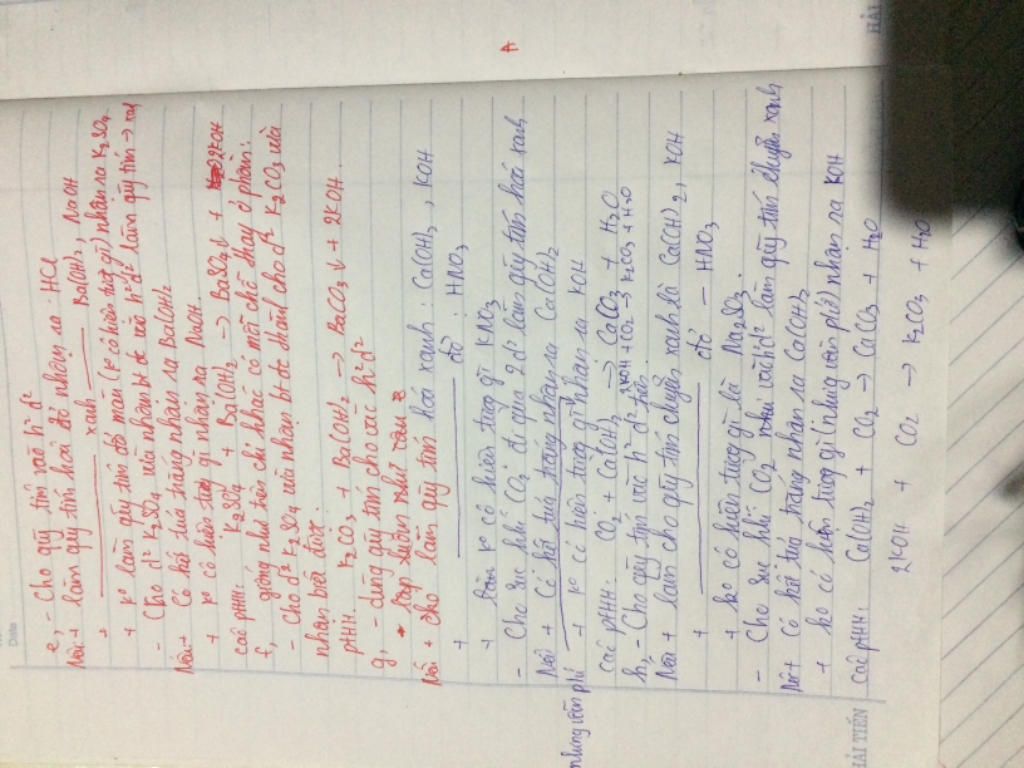 Date
e, - Cho quỳ tím vào h² d²
Nếu + làm quỳ tím hóa đỏ nhận ra : HCl
+ ——— xanh ——— Ba(OH)₂, NaOH
+ ko làm quỳ tím đổi màu (ko có hiện tượng gì) nhận ra K₂SO₄
- Cho d² K₂SO₄ vừa nhận bt đc vào h² d² làm quỳ tím → xanh
Nếu + Có kết tủa trắng nhận ra Ba(OH)₂
+ ko có hiện tượng gì nhận ra NaOH.
các pthh: K₂SO₄ + Ba(OH)₂ → BaSO₄↓ + 2KOH
f, giống như trên chỉ khác có một chỗ thay ở phần:
- Cho d² K₂SO₄ vừa nhận bt đc thành cho d² K₂CO₃ vừa
nhận biết được.
pthh. K₂CO₃ + Ba(OH)₂ → BaCO₃↓ + 2KOH.
g, - dùng quỳ tím cho vào h² d²
Nếu + cho làm quỳ tím hóa xanh : Ca(OH)₂, KOH
+ ——— đỏ : HNO₃
+ ko có hiện tượng gì KNO₃
- Cho sục khí CO₂ đi qua 2 d² làm quỳ tím hóa xanh
Nếu + Có kết tủa trắng nhận ra Ca(OH)₂
nhưng vẫn phí + ko có hiện tượng gì nhận ra KOH
Các pthh: CO₂ + Ca(OH)₂ → CaCO₃ + H₂O
2KOH + CO₂ → K₂CO₃ + H₂O
h, - Cho quỳ tím vào h² d² trên.
Nếu + làm cho quỳ tím chuyển xanh là Ca(OH)₂, KOH
+ ——— đỏ - HNO₃
+ ko có hiện tượng gì là Na₂SO₄.
- Cho sục khí CO₂ vào h² d² làm quỳ tím chuyển xanh
Nếu + Có kết tủa trắng nhận ra Ca(OH)₂
+ ko có hiện tượng gì (nhưng vẫn phí) nhận ra KOH
Các pthh: Ca(OH)₂ + CO₂ → CaCO₃ + H₂O
2KOH + CO₂ → K₂CO₃ + H₂O
HẢI TIẾN
HẢI